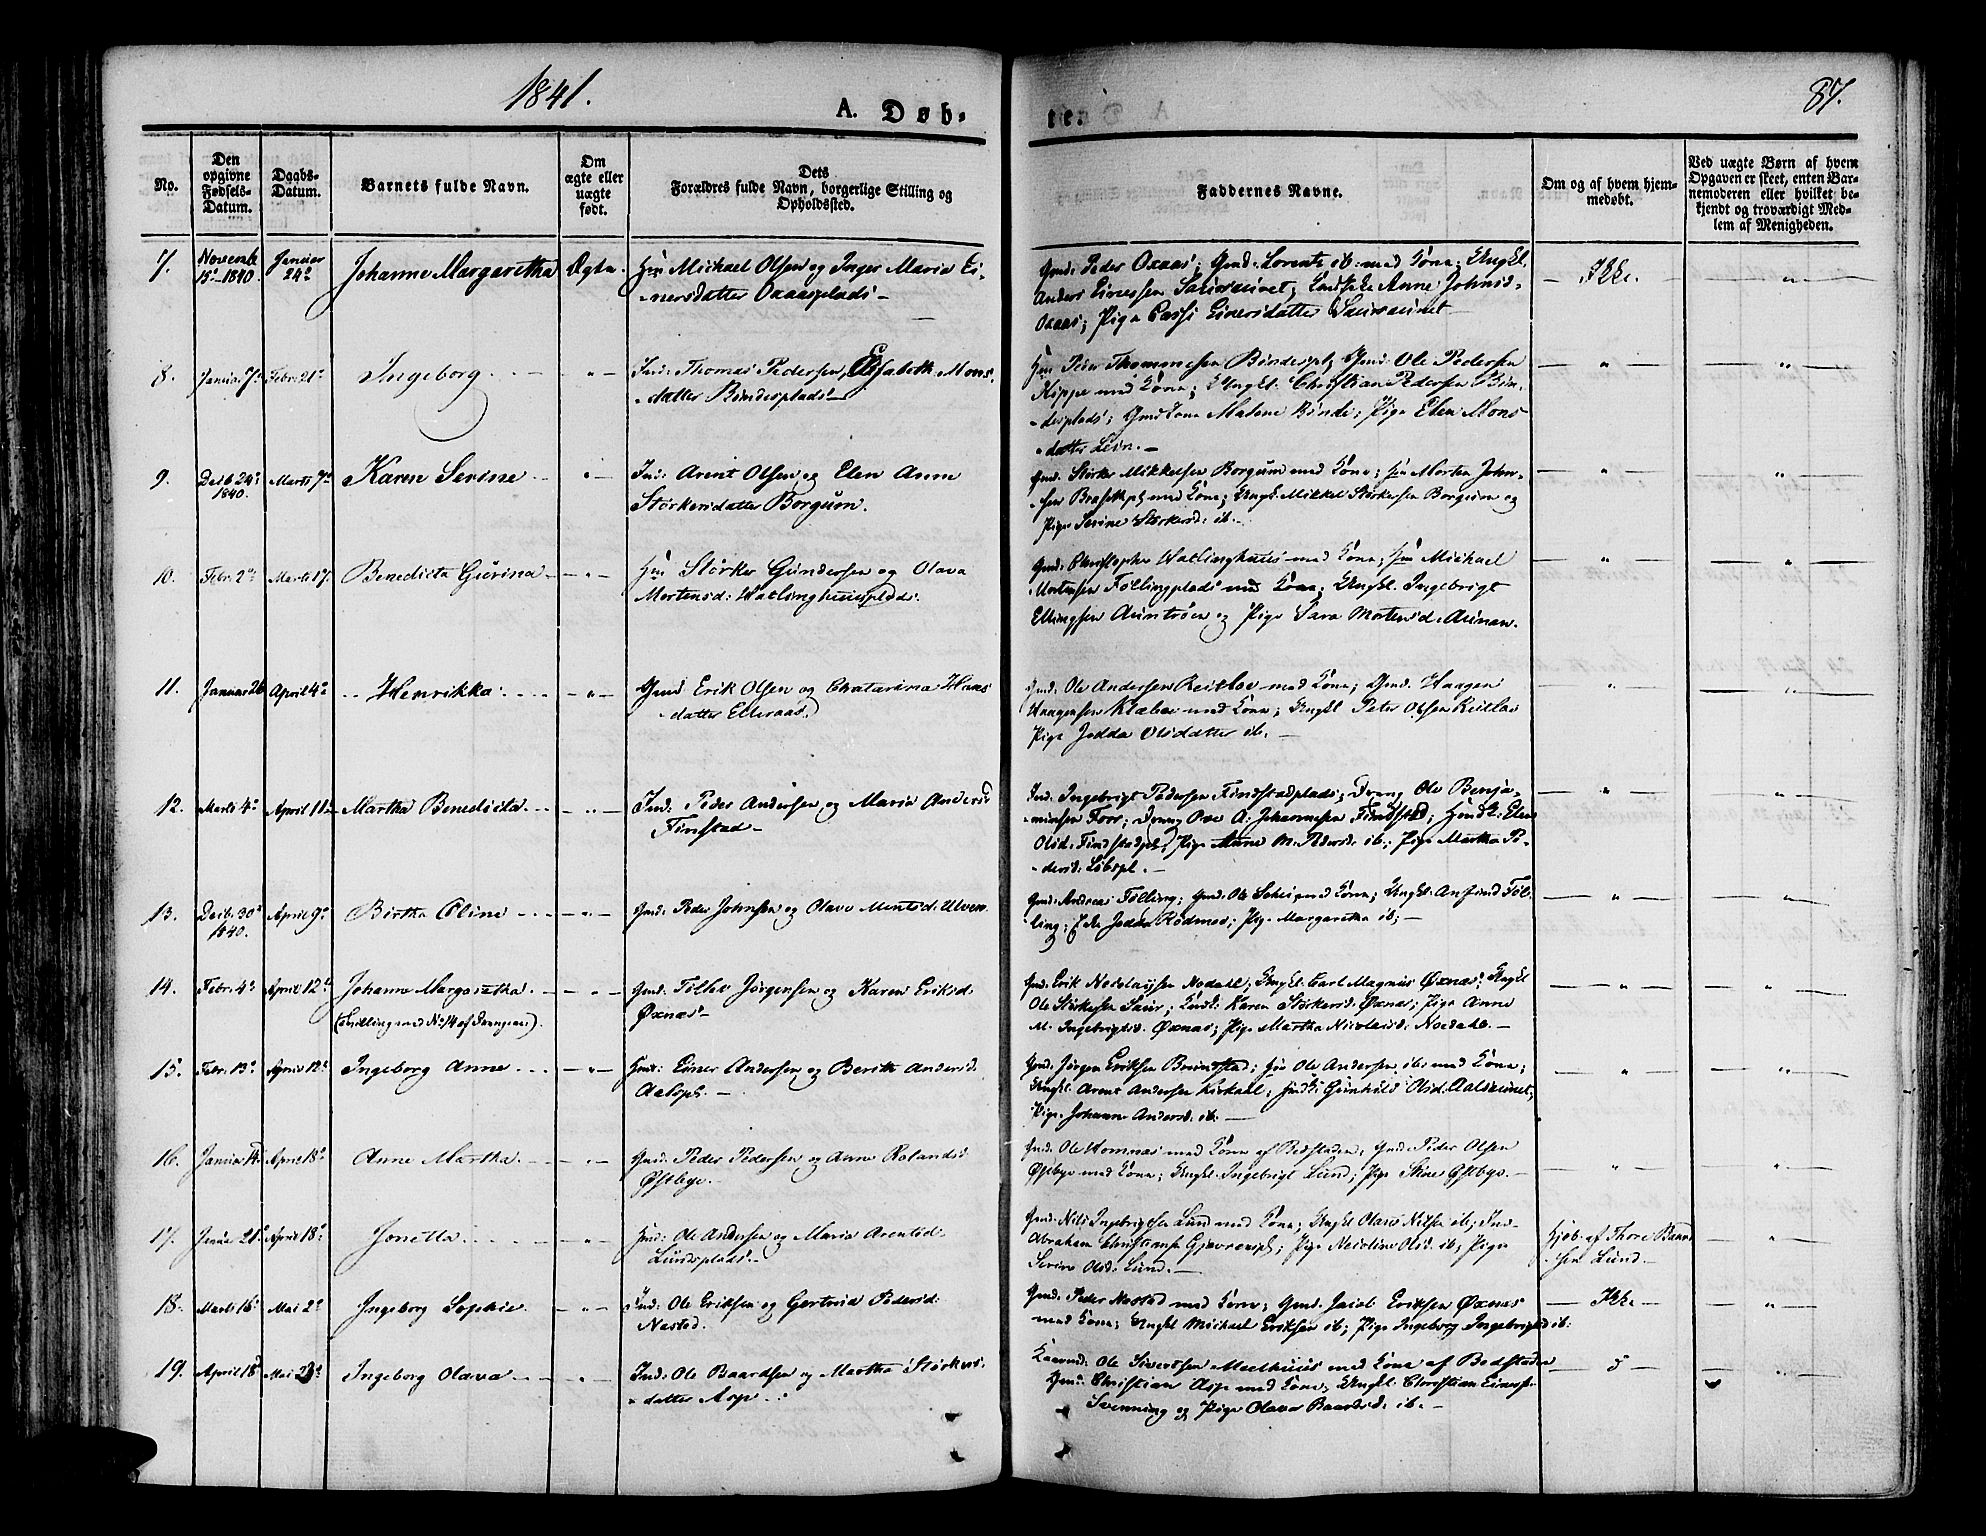 1841.
A. Døb-
te:
87.
No.
Den opgivne Fødsels-Datum.
Daabs-Datum.
Barnets fulde Navn.
Om ægte eller uægte født.
Dets Forældres fulde Navn, borgerlige Stilling og Opholdssted.
Faddernes Navne.
Om og af hvem hjem-medøbt.
Ved uægte Børn af hvem Opgaven er skeet, enten Bar-nemoderen eller hvilket be-kjendt og troværdigt Med-lem af Menigheden.
7. Novemb 15de 1840. Januar 24de Johanne Margaretha Ægte. Michael Olsen og Inger Maria Ei-
nersdatter Oxaasplads
Gmd: Peder Oxaas; Gmd: Lorents ib. med Kone; Ungkl.
Anders Anne Johnsd.
Oxaas; Pige Einersdatter
Ikke.
8. Januar 7de Febr: 21de Ingeborg. Ind: Thomas Pedersen, Elisabeth Mons-
datter Bindesplads
Peder Thomassen Bindespl; Gmd: Ole Pedersen
med Kone; Ungkl. Christian Pedersen Bin-
desplads; Gmd Kone Malene Binde; Pige Elen Mons-
datter Lein.
9. Decb 24de 1840. Marts 7de Karen Serine Ind: Arent Olsen og Elen Anne
Størkersdatter Borgum.
Gmd: Størker Mikkelsen Borgum med Kone; Morten John-
sen med Kone; Ungkl. Mikkel Størkersen Borgum og
Pige Serine Størkersd: ib.
10. Febr: 2de Marts 17. Benedicta Gurina Størker Gundersen og Olava
Mortensd: Watlinghuusplads.
Gmd: Christopher Watlinghuus med Kone; Michael
Mortensen Føllingplads med Kone; Ungkl. Ingebrigt
Ellingsen Auntrøen og Pige Sara Mortensd. Aunan.
11. Januar 26 April 4de Henrikka. Gmd Erik Olsen og Chatarina Hans-
datter Elleraas.
Gmd: Ole Andersen Reitloe med Kone; Gmd. Haagen
Haagensen Klæboe med Kone; Ungkl Peter Olsen Reitloe
Pige Jedda Olsdatter ib.
12. Marts 4de April 11te Martha Benedicta Ind: Peder Andersen og Maria Andersd
Finstad
Ind. Ingebrigt Pedersen Findstadplads; Dreng Ole Benja-
minsen Foss; Dreng Ove A. Johannesen Findstad; Elen
Olsd. Findstadpl; Pige Anne M. Pedersd: ib; Pige Martha Pe-
dersd:
13. Decb. 30te 1840. April 9de Birtha Oline Gmd: Peder Johnsen og Olava Mentsd: Ulven.
Gmd. Andreas Følling; Gmd: Ole med Kone; Ungkl. Anfind Føl-
ling; Jedda Pige Margaretha ib;
14. Febr: 4de April 12te Johanne Margaretha
(Tvilling med N: 14 af Drengene).
Gmd: Jørgensen og Karen Eriksd:
Øxnæs
Gmd. Erik Nicolaysen Nodahl; Ungkl. Carl Magnus Øxnæs; Ungkl
Ole Størkersen Saur; Karen Størkersd. Øxnæs; Pige Anne
M. Ingebrigtsd. Øxnæs; Pige Martha Nicolaisd. Nordahl.
15. Febr: 13de April 12te Ingeborg Anne Einer Andersen og Berith Andersd:
Aalspl.
Gmd: Jørgen Eriksen Breidstad; Ole Andersen ib: med Kone;
Ungkl. Arent Andersen Kirkahl; Gunhild Olsd.
Pige Johanne Andersd: ib:
16. Januar 14de April 18de Anne Martha Gmd: Peder Pedersen og Anne Rolandsd
Østbye.
Gmd: Ole med Kone af Bedstaden, Gmd Peder Olsen
Østbye med Kone; Ungkl. Ingebrigt Lund; Pige Østbye.
17. Janua 21de April 18de Jonetta Ole Andersen og Maria Arentsd:
Lundsplads.
Gmd: Nils Ingebrigtsen Lund med Kone; Ungkl Olaus Nilsen ib;
Abraham Christiansen Pige Nicoline Olsd. ib; Pige
Serine Olsd: Lund.
hjdb. af Thore Baard
sen Lund.
18. Marts 16de Mai 2de Ingeborg Sophie Ind: Ole Eriksen og Gertrud Pedersd:
Nastad.
Gmd: Peder Nastad med Kone; Gmd. Jacob Eriksen Øxnæs
med Kone; Ungkl Michael Eriksen ib; Pige Ingeborg Ingebrigtsd ib:
Ikke
19. April 18de Mai 23de Ingeborg Olava Ind: Ole Baardsen og Martha Størkers-
datter Asp
Ole Sivertsen Melhuus med Kone af Bedstaden
Gmd: Christian Asp med Kone; Ungkl. Christian Einers.
Svenning og Pige Olava Baardsd: ib.